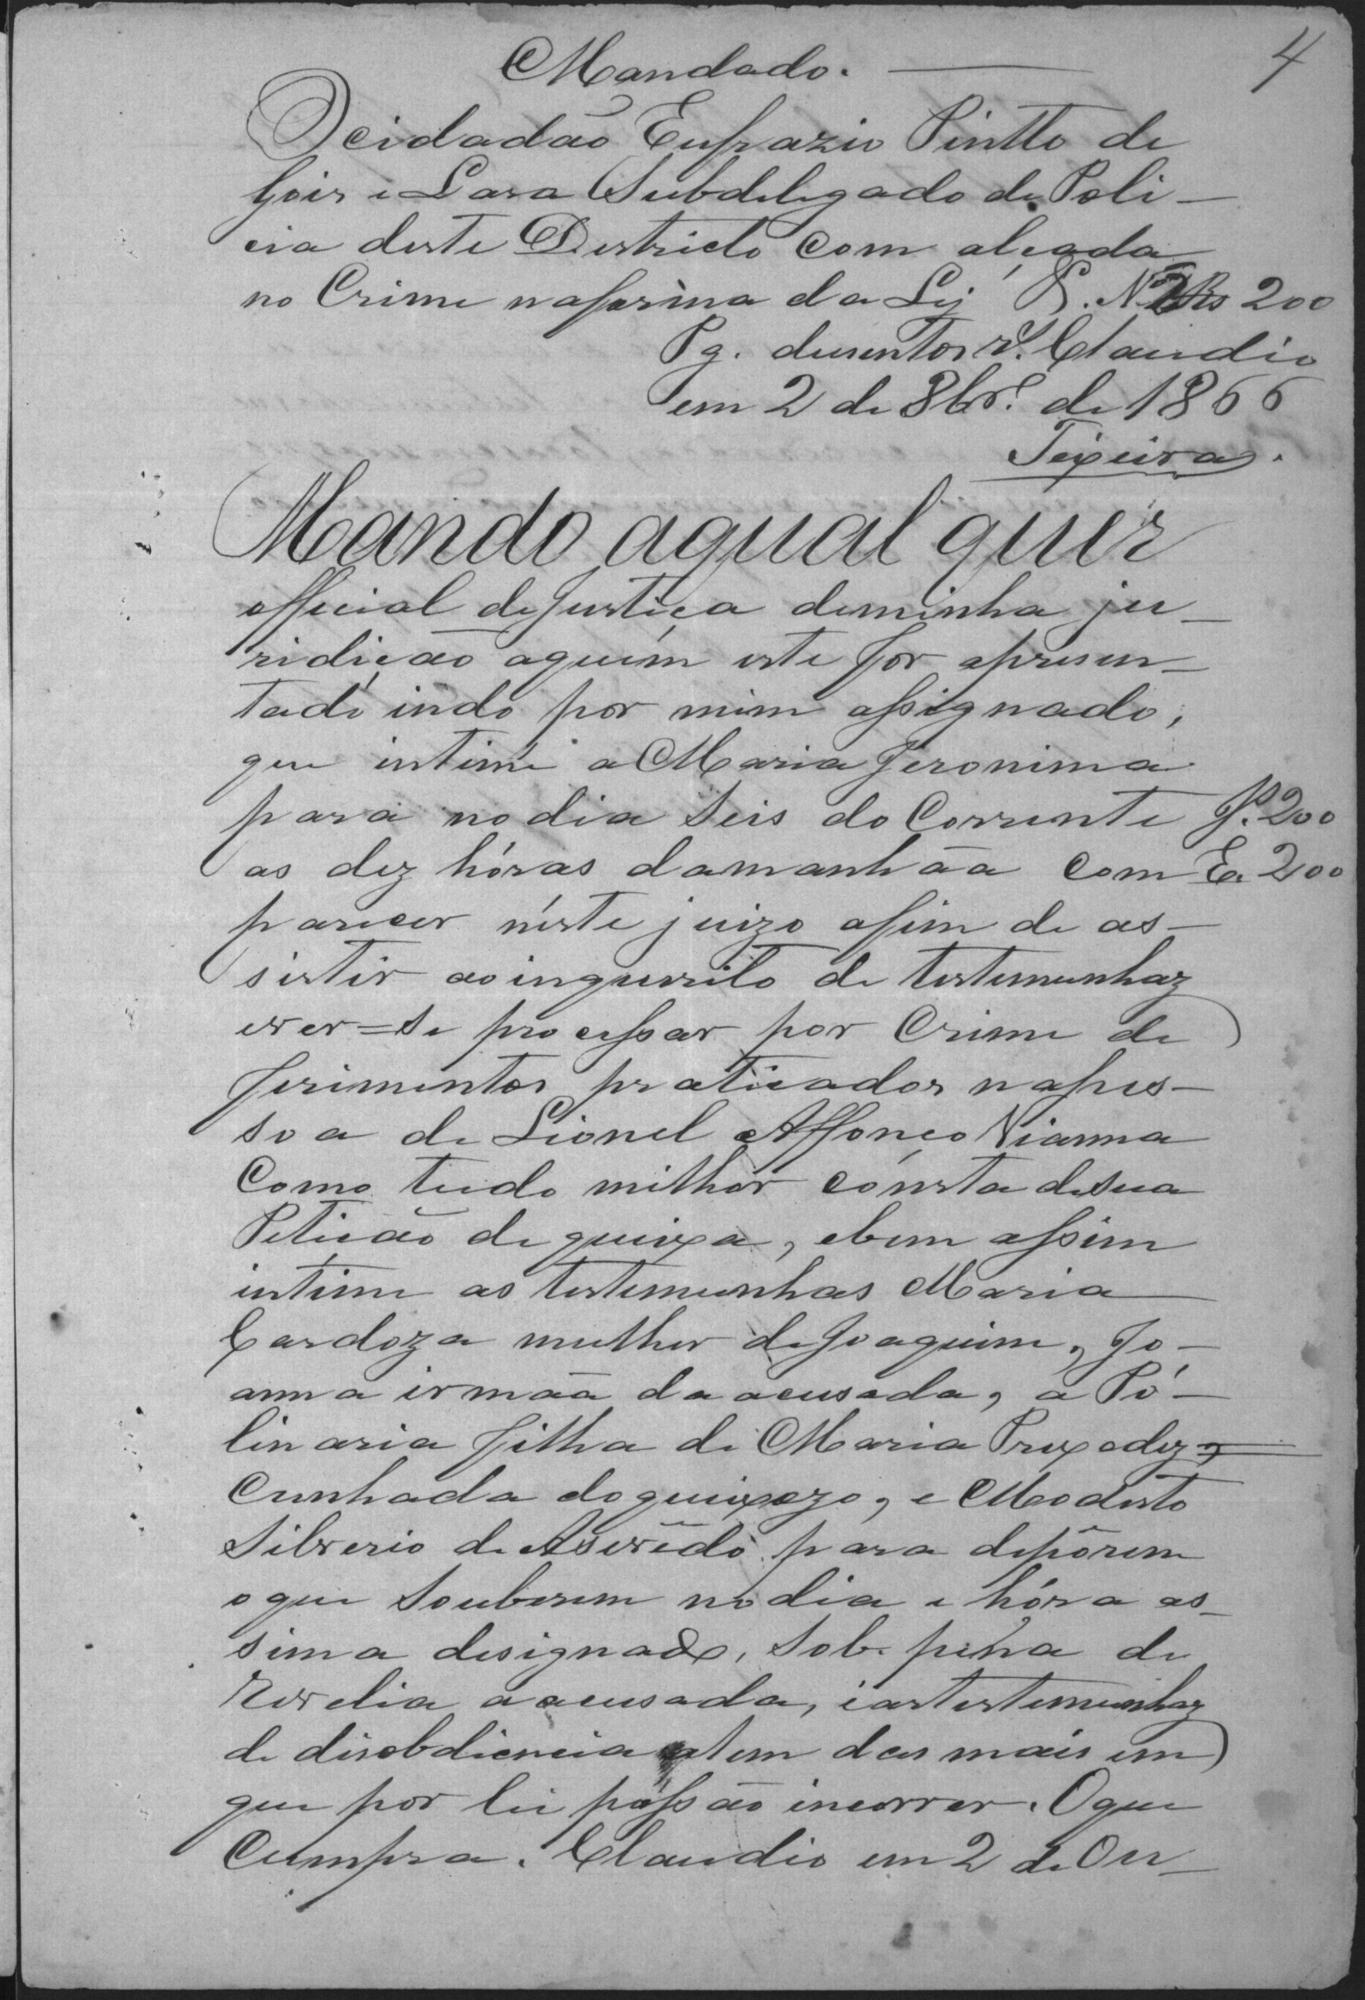 4
Mandado.
O cidadão Eufrazio Pintto de
Gois e Lara Subdelegado de Poli-
cia deste Destricto com alçada
no Crime na forma da Lei &. N 2 Rs 200
Pg. dusentos rs. Claudio
em 2 de 8br.º de 1866
Teixeira.
Mando aqual quer
official de Justiça deminha ju-
ridição aquem este for apresen-
tado indo por mim assignado,
que intime a Maria Jeronima
para no dia seis do Corrente J. 200
as dez hóras damanhãa com E. 200
parecer néste juizo afim de as-
sistir ao inquerito de testemunhaz
ever=se processar por Crime de
ferimentos praticados napes-
soa de Lionel Affonço Vianna
Como tudo milhor cónsta desua
Petição de queixa, ebem assim
intime as testemunhas Maria
Cardoza mulher de Joaquim, Jo-
anna irmãa da acusada, a Pó-
linaria filha de Maria Prexedez,
Cunhada doqueixozo, e Modesto
Silverio de Asevêdo para depôrem
oque Souberem no dia e hóra as-
sima designado, Sob pena de
Revelia a acusada, e astestemunhaz
de disobdiencia alem das mais em
que por lei póssão incorrer. O que
Cumpra. Claudio em 2 de Ou-